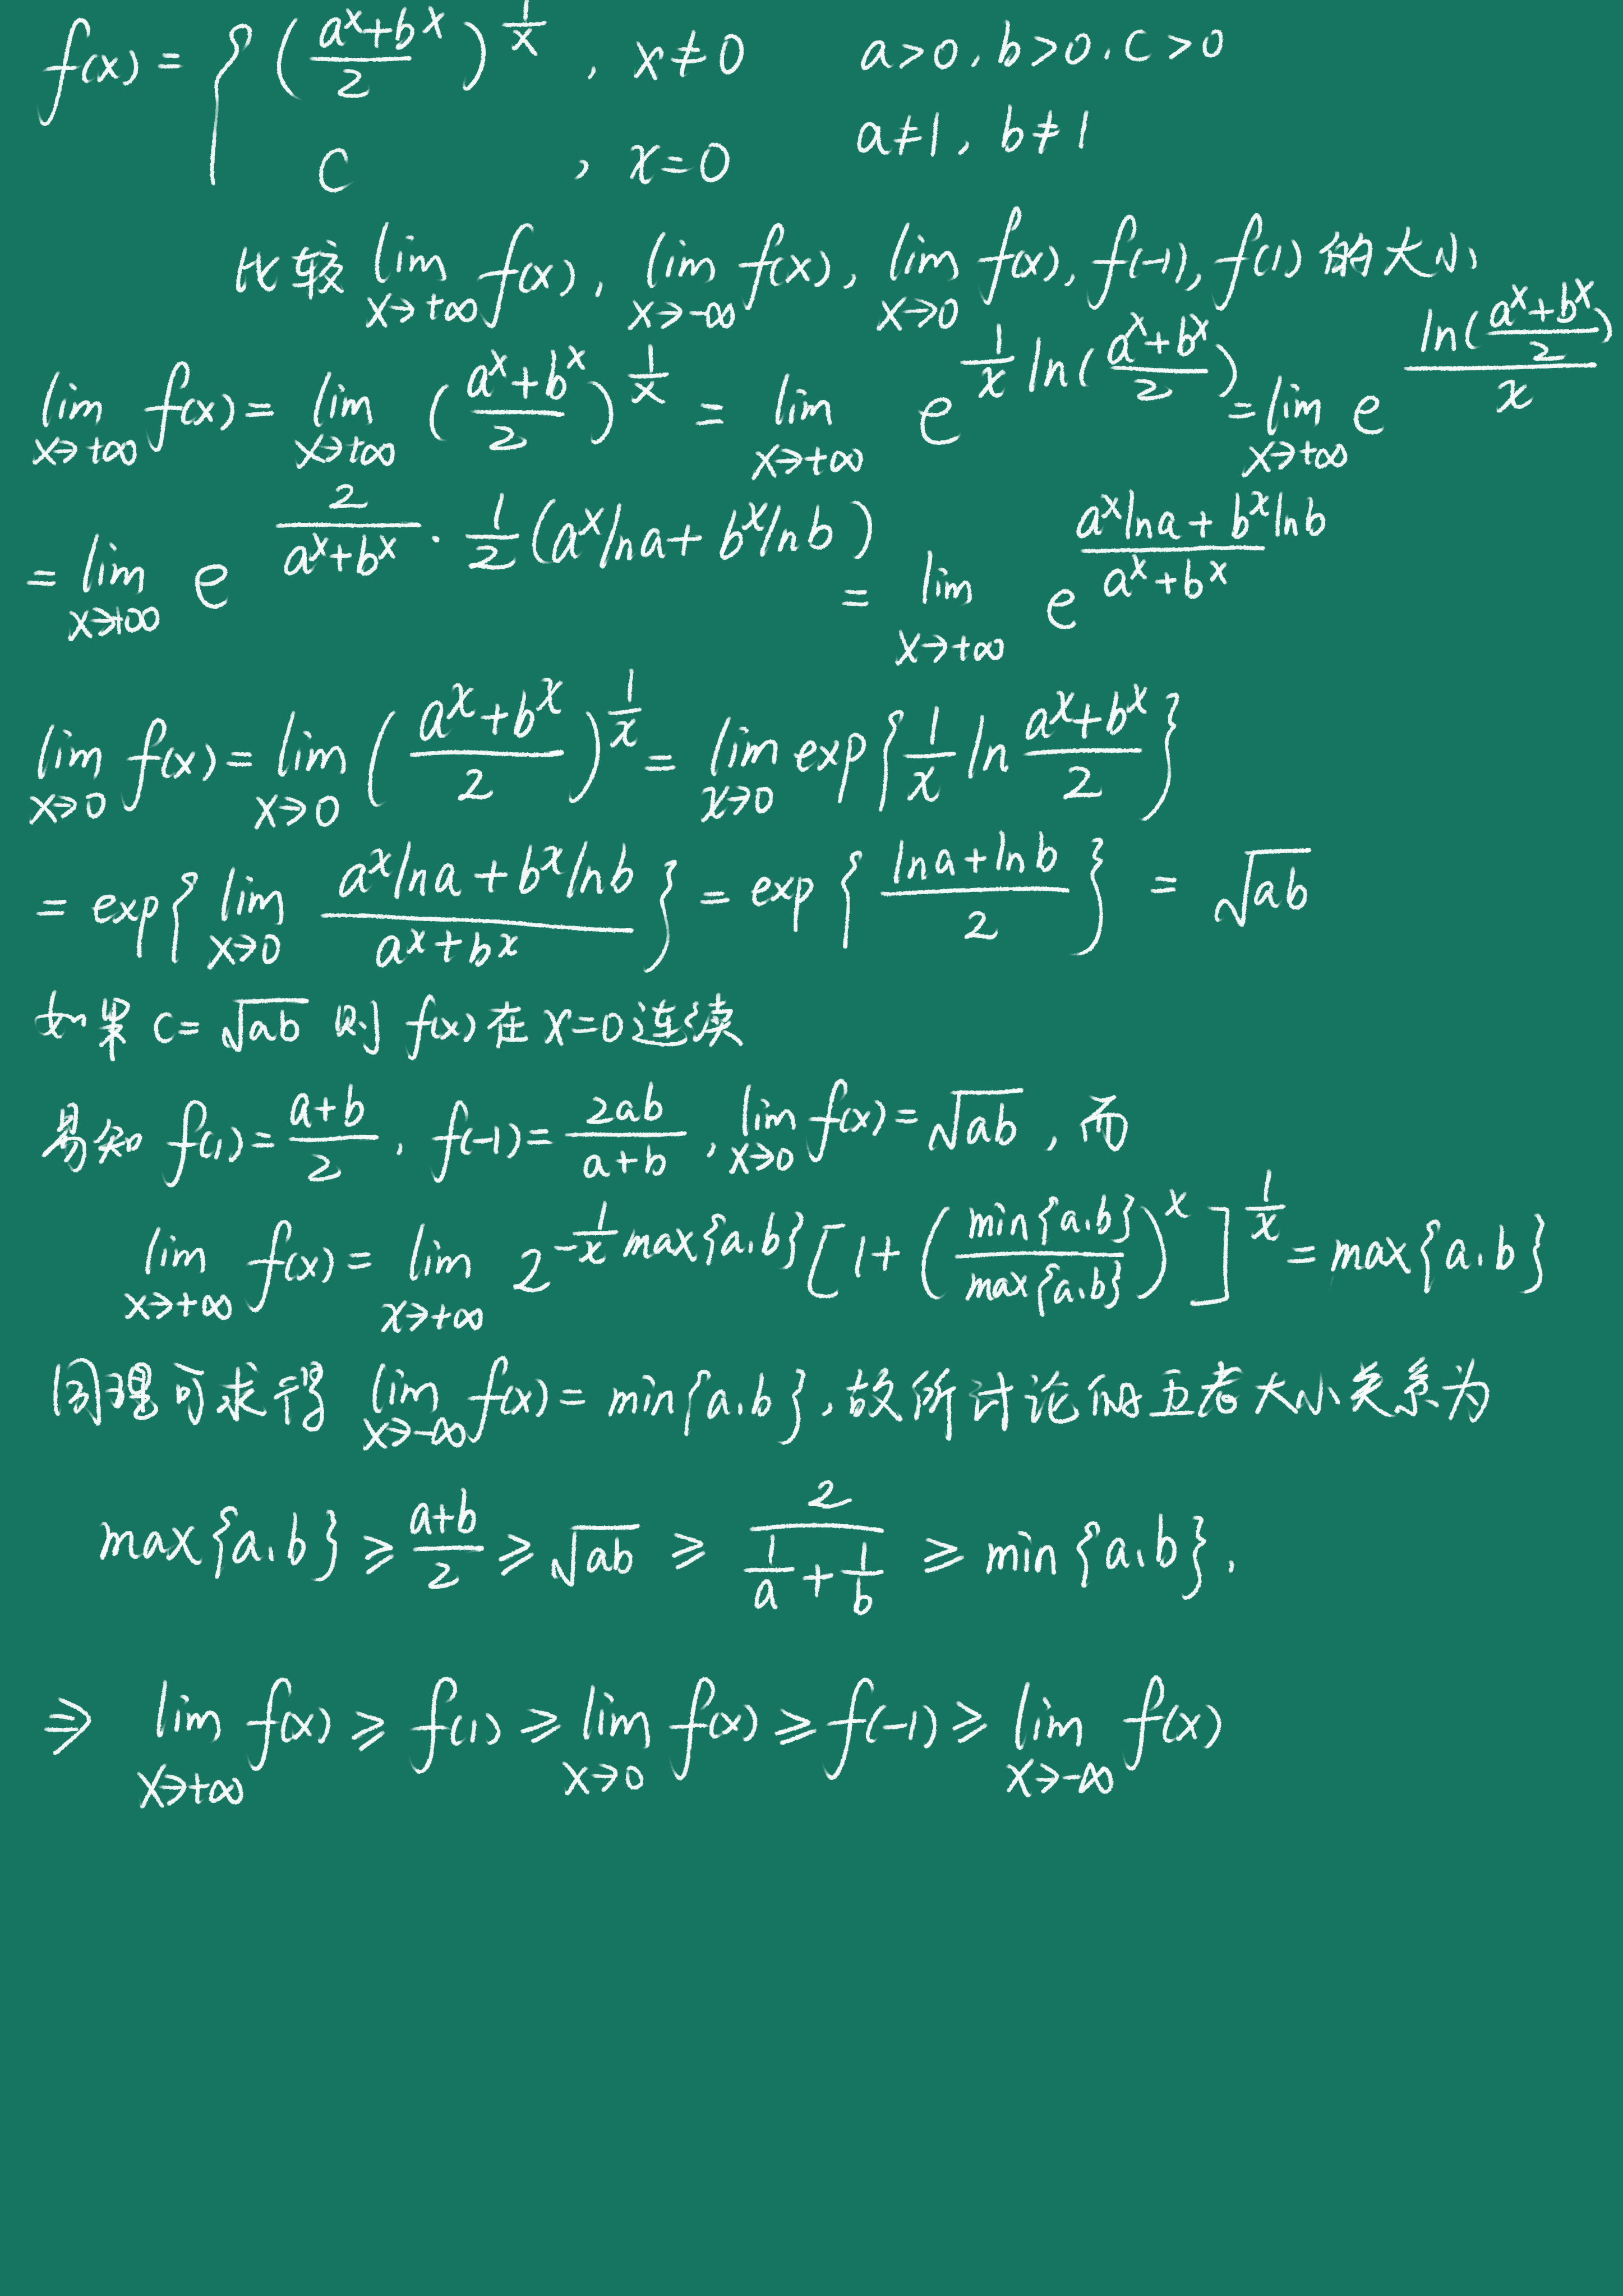 f(x) = { ( (a^x+b^x)/2 )^(1/x) , x≠0 a>0, b>0, c>0
c , x=0 a≠1, b≠1
比较 lim_{x→+∞} f(x), lim_{x→-∞} f(x), lim_{x→0} f(x), f(-1), f(1) 的大小
lim_{x→+∞} f(x) = lim_{x→+∞} ( (a^x+b^x)/2 )^(1/x) = lim_{x→+∞} e^{(1/x) ln((a^x+b^x)/2)} = lim_{x→+∞} e^{ln((a^x+b^x)/2)/x}
= lim_{x→+∞} e^{2/(a^x+b^x) · 1/2 (a^x lna + b^x lnb)} = lim_{x→+∞} e^{(a^x lna + b^x lnb)/(a^x+b^x)}
lim_{x→0} f(x) = lim_{x→0} ( (a^x+b^x)/2 )^(1/x) = lim_{x→0} exp{ (1/x) ln (a^x+b^x)/2 }
= exp{ lim_{x→0} (a^x lna + b^x lnb)/(a^x+b^x) } = exp{ (lna+lnb)/2 } = √(ab)
如果 c=√(ab) 则 f(x) 在 x=0 连续
易知 f(1) = (a+b)/2, f(-1) = 2ab/(a+b), lim_{x→0} f(x) = √(ab), 而
lim_{x→+∞} f(x) = lim_{x→+∞} 2^{-1/x} max{a,b} [ 1 + ( min{a,b}/max{a,b} )^x ]^(1/x) = max{a,b}
同理可求得 lim_{x→-∞} f(x) = min{a,b}, 故所讨论的五者大小关系为
max{a,b} ≥ (a+b)/2 ≥ √(ab) ≥ 2/(1/a+1/b) ≥ min{a,b}.
⇒ lim_{x→+∞} f(x) ≥ f(1) ≥ lim_{x→0} f(x) ≥ f(-1) ≥ lim_{x→-∞} f(x)